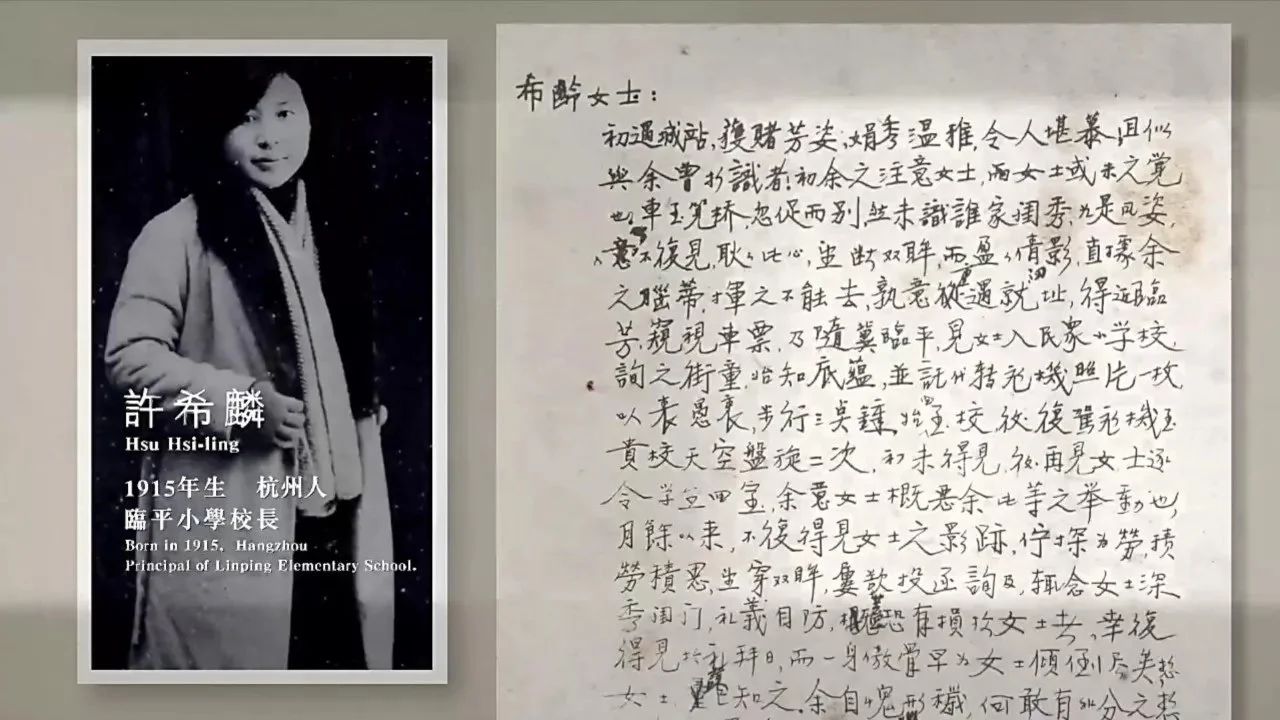 許希麟
Hsu Hsi-ling
1915年生 杭州人
臨平小學校長
Born in 1915, Hangzhou
Principal of Linping Elementary School.
希齡女士：
初遇城站，獲睹芳姿，娟秀溫雅，令人堪慕，且似
與余曾於識者，初余之注意女士，而女士或未之覺
也，車至筧橋，忽促而別，然未識誰家閨秀，
意不復見，耿耿此心，望斷双眸，而盈盈倩影，直據余
之腦蒂，揮之不能去，孰意從遇就址，得近臨
芳，窺視車票，乃隨冀臨平，見女士入民眾小学校，
詢之街童，始知底蘊，並託付轉飛機照片一枚，
以表愚衷，步行三点鐘，始回至校，後復駕飛機至
貴校天空盤旋二次，初未得見，後再見女士逐
令学生回室，余意女士概惡余此等之举動也，
月餘以来，不復得見女士之影跡，佇探为勞，積
勞積思，望穿双眸，屢欲投函詢及，輒念女士深
秀闺门，礼義自防，恐有損於女士者，幸復
得見於礼拜日，而一身傲骨早为女士傾倒尽矣，
女士知之，余自愧形穢，何敢有非分之